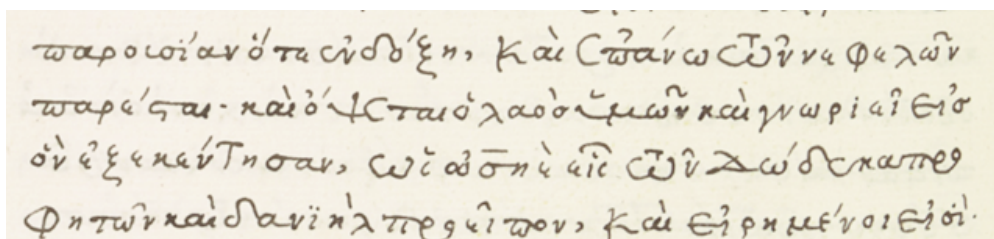 παρουσίαν ὅτε ἐνδόξη, καὶ ἐπάνω τῶν νεφελῶν
παρέσται· καὶ ὄψεται ὁ λαὸσ ὑμῶν καὶ γνωριεῖ εἰσ
ὃν ἐξεκέντησαν, ὡς ὠσηὲ εἷς τῶν δώδεκα προ
φητῶν καὶ δανϊὴλ προεῖπον, καὶ εἰρημένοι εἰσὶ.